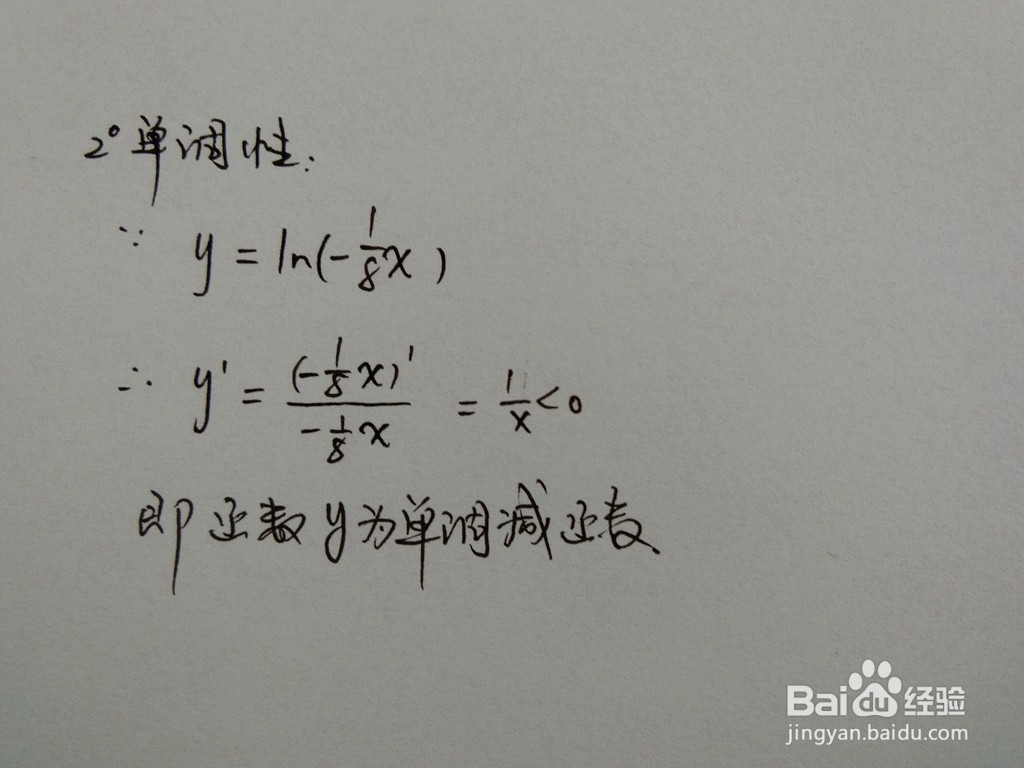 2° 单调性.
∵ y = ln(-1/8x)
∴ y' = (-1/8x)'/-1/8x = 1/x < 0
即函数y为单调减函数.
Bai du 经验
jingyan.baidu.com